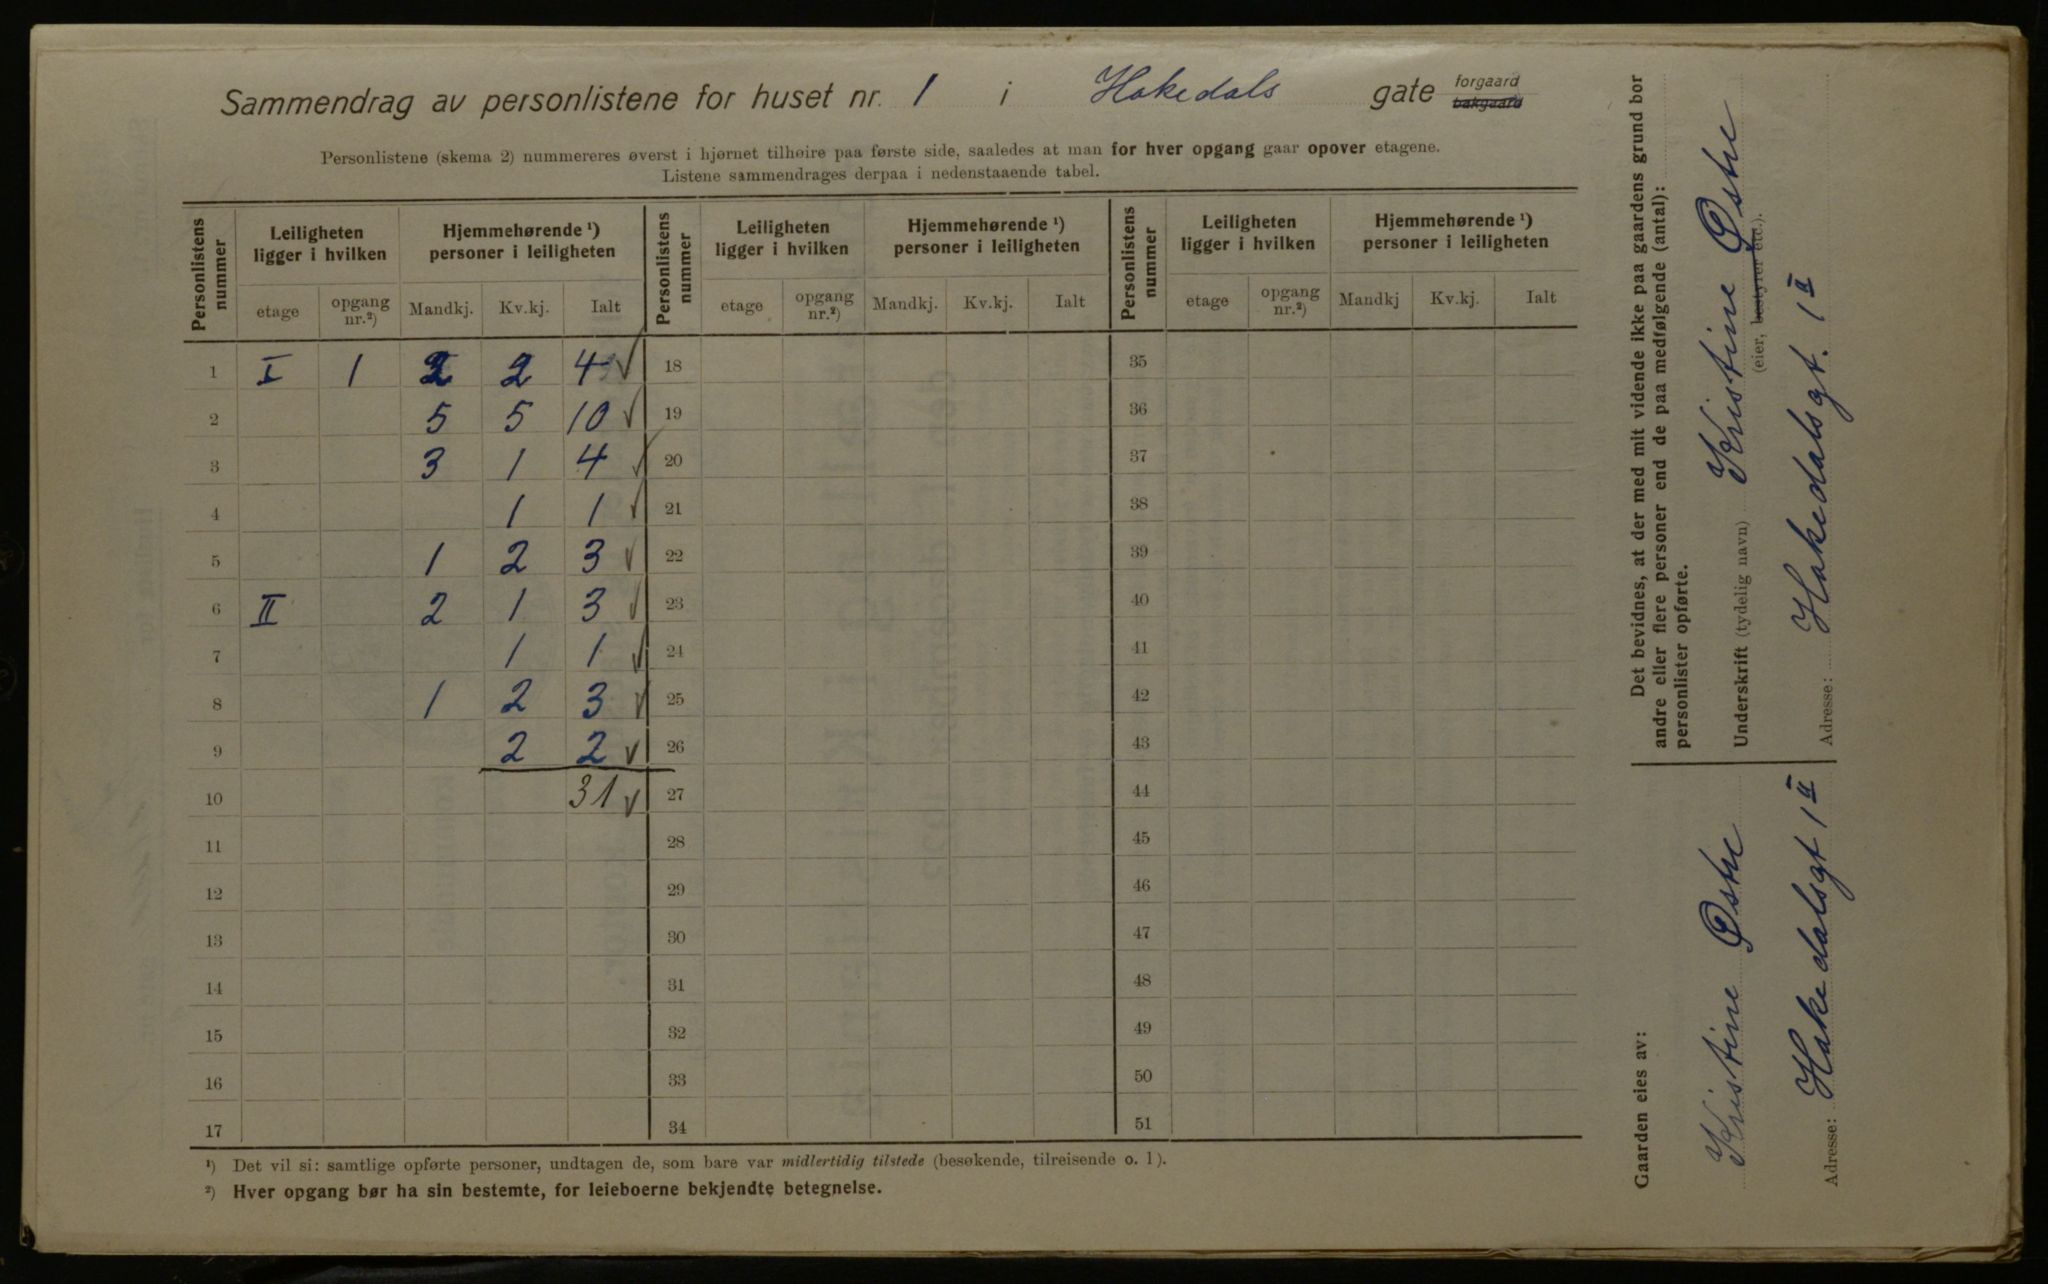 Sammendrag av personlistene for huset nr. 1 i Hakedals gate forgaard bakgaard
Personlistene (skema 2) nummereres øverst i hjørnet tilhøire paa første side, saaledes at man for hver opgang gaar opover etagene.
Listene sammendrages derpaa i nedenstaaende tabel.
Personlistens nummer | Leiligheten ligger i hvilken | Hjemmehørende ¹) personer i leiligheten | Personlistens nummer | Leiligheten ligger i hvilken | Hjemmehørende ¹) personer i leiligheten | Personlistens nummer | Leiligheten ligger i hvilken | Hjemmehørende ¹) personer i leiligheten
etage | opgang nr.²) | Mandkj. | Kv.kj. | Ialt | etage | opgang nr.²) | Mandkj. | Kv.kj. | Ialt | etage | opgang nr.²) | Mandkj | Kv.kj. | Ialt
1 I 1 2 2 4 ✓ 18 35
2 5 5 10 ✓ 19 36
3 3 1 4 ✓ 20 37
4 1 1 ✓ 21 38
5 1 2 3 ✓ 22 39
6 II 2 1 3 ✓ 23 40
7 1 1 ✓ 24 41
8 1 2 3 ✓ 25 42
9 2 2 ✓ 26 43
10 31 ✓ 27 44
11 28 45
12 29 46
13 30 47
14 31 48
15 32 49
16 33 50
17 34 51
¹) Det vil si: samtlige opførte personer, undtagen de, som bare var midlertidig tilstede (besøkende, tilreisende o. l).
²) Hver opgang bør ha sin bestemte, for leieboerne bekjendte betegnelse.
Det bevidnes, at der med mit vidende ikke paa gaardens grund bor
andre eller flere personer end de paa medfølgende (antal):
personlister opførte.
Underskrift (tydelig navn) Kristine Østre
(eier, bestyrer etc.).
Adresse: Hakedalsgt. 1 II
Gaarden eies av:
Kristine Østre
Adresse: Hakedalsgt 1 II